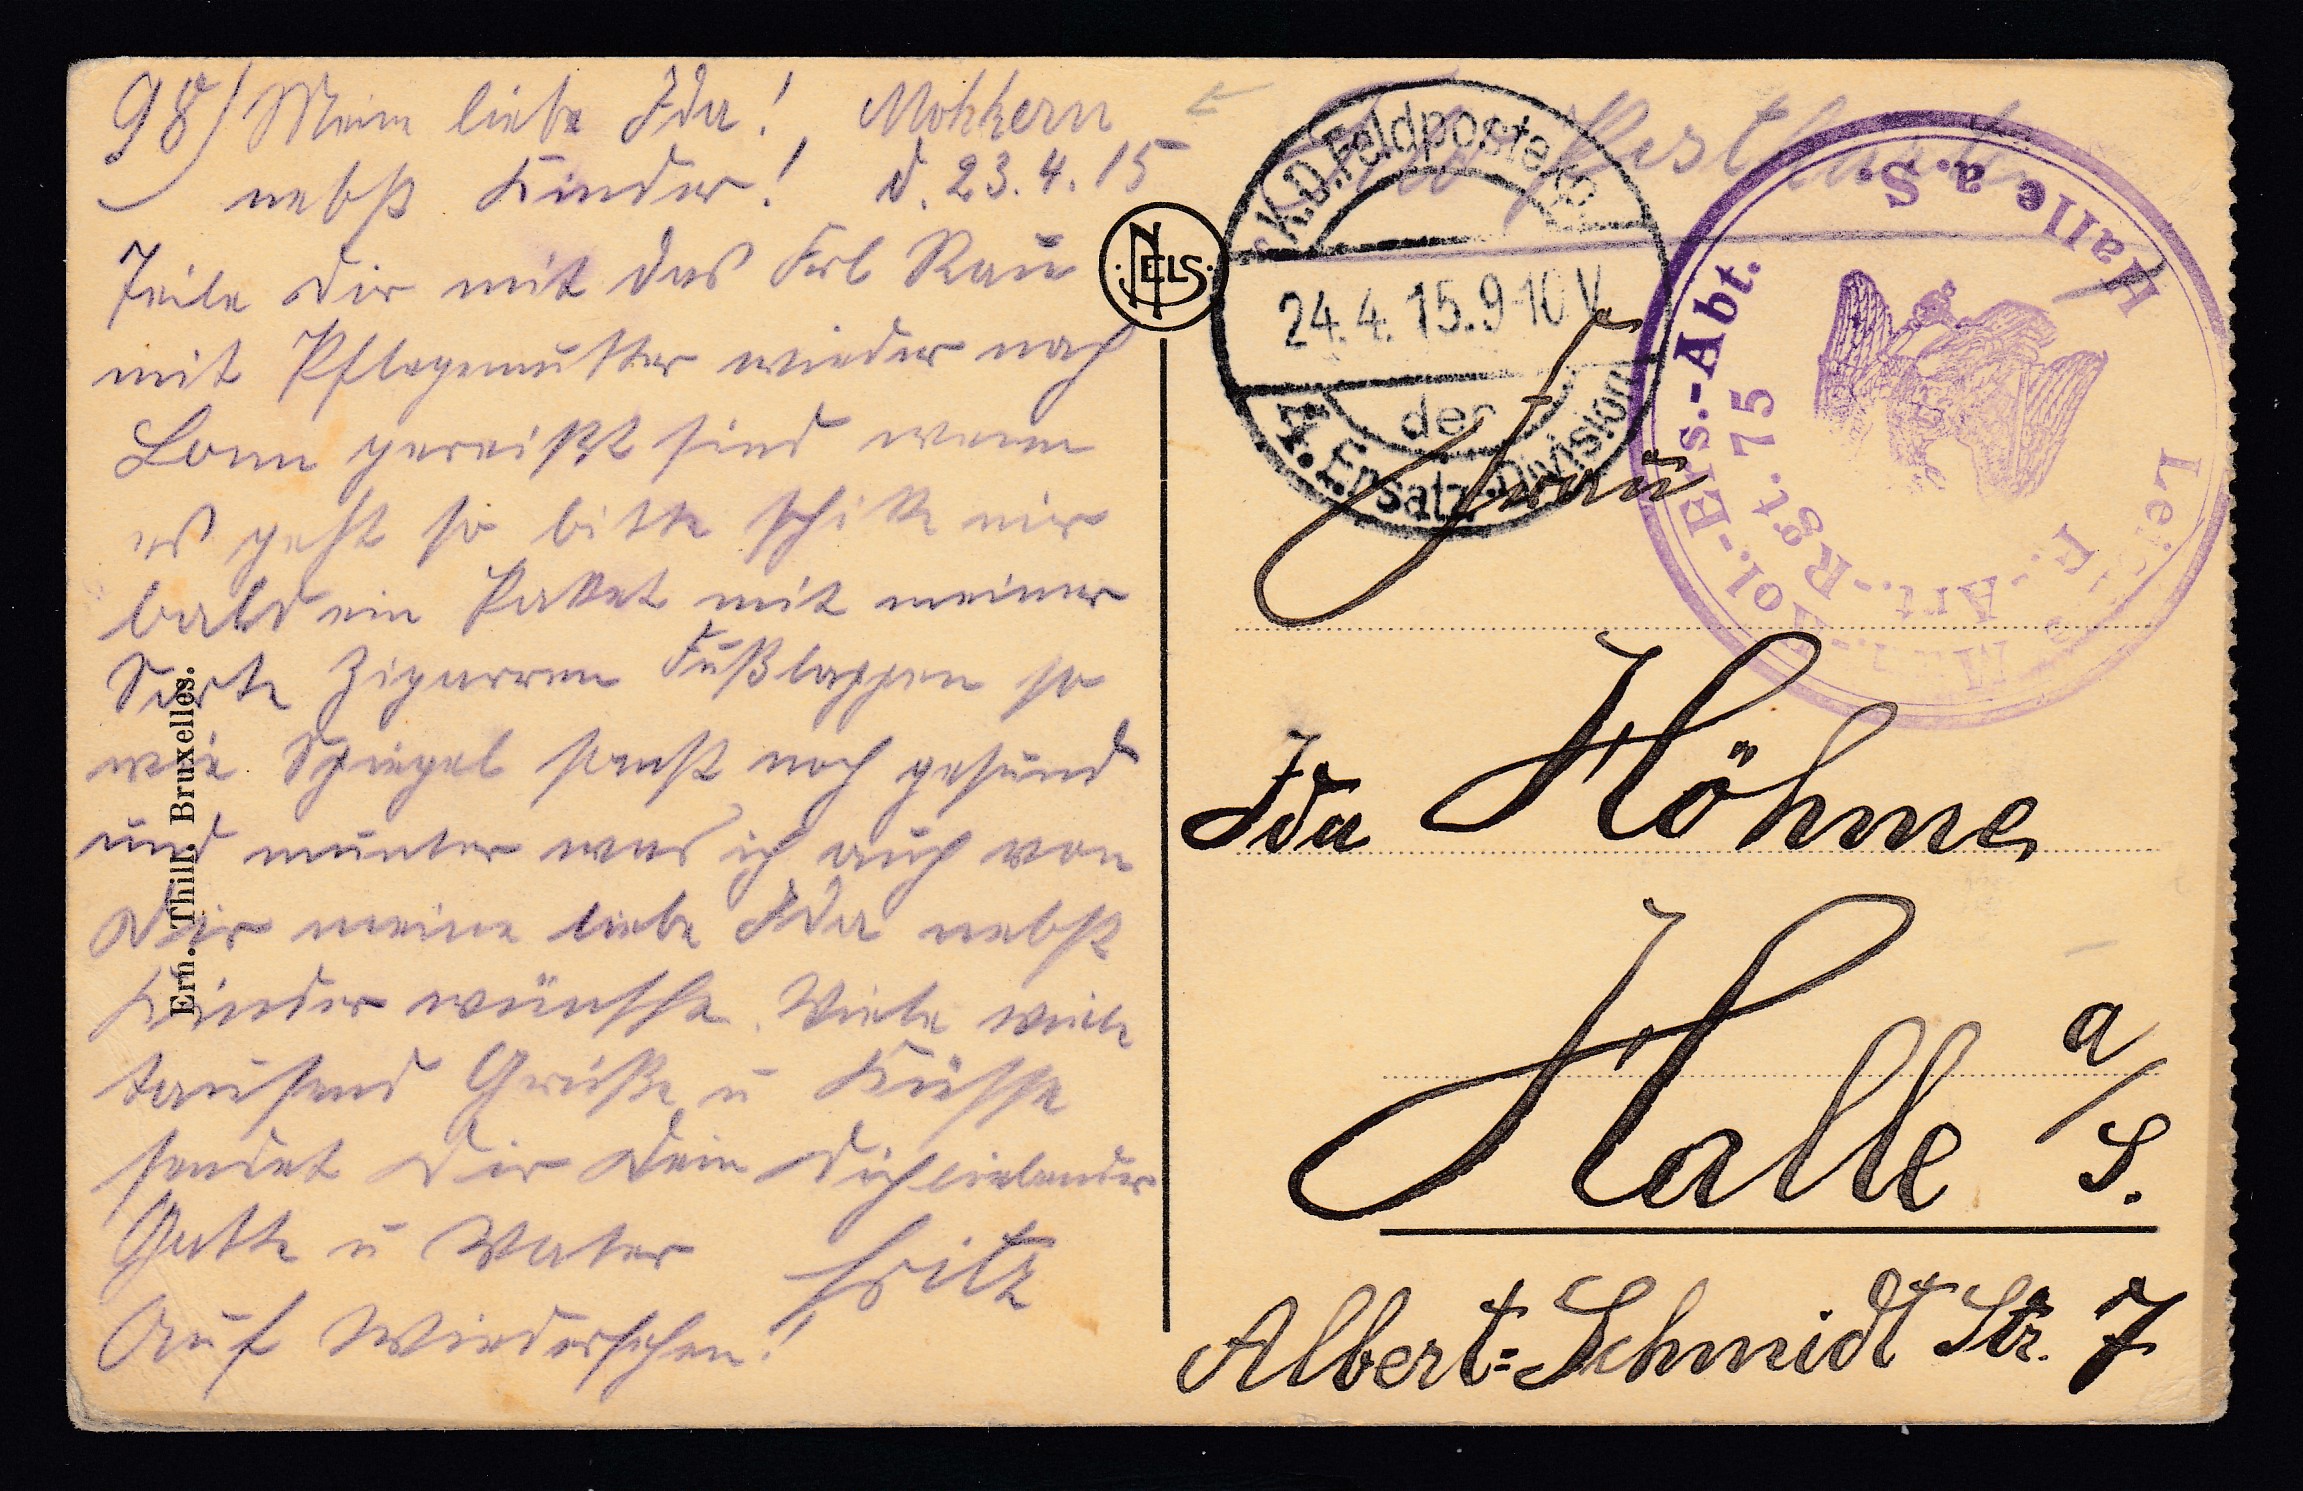 98) Meine liebe Ida! Mokkern
nebst Kinder! d. 23.4.15
Teile Dir mit das Frl Rau
mit Pflegemutter wieder nach
Bonn gereißt sind wenn
es geht so bitte schike mir
bald ein Paket mit meiner
Sorte Zigarren Fußlappen so
wie Spiegel sonst noch gesund
und munter was ich auch von
Dir meine liebe Ida nebst
Kinder wünsche. Viele viele
tausend Grüße u Küsse
sendet Dir Dein Dich liebender
Gatte u Vater Fritz
Auf Wiedersehen!
Ern. Thill, Bruxelles.
NELS
Feldpostkarte
K.D. Feldpostexp.
24.4.15.9-10V.
der
4. Ersatz-Division
Halle a. S.
Leichte
Mun.-Kol.-Ers.-Abt.
F.-Art.-Rgt. 75
Frau
Ida Höhme,
Halle a/S.
Albert-Schmidt Str. 7